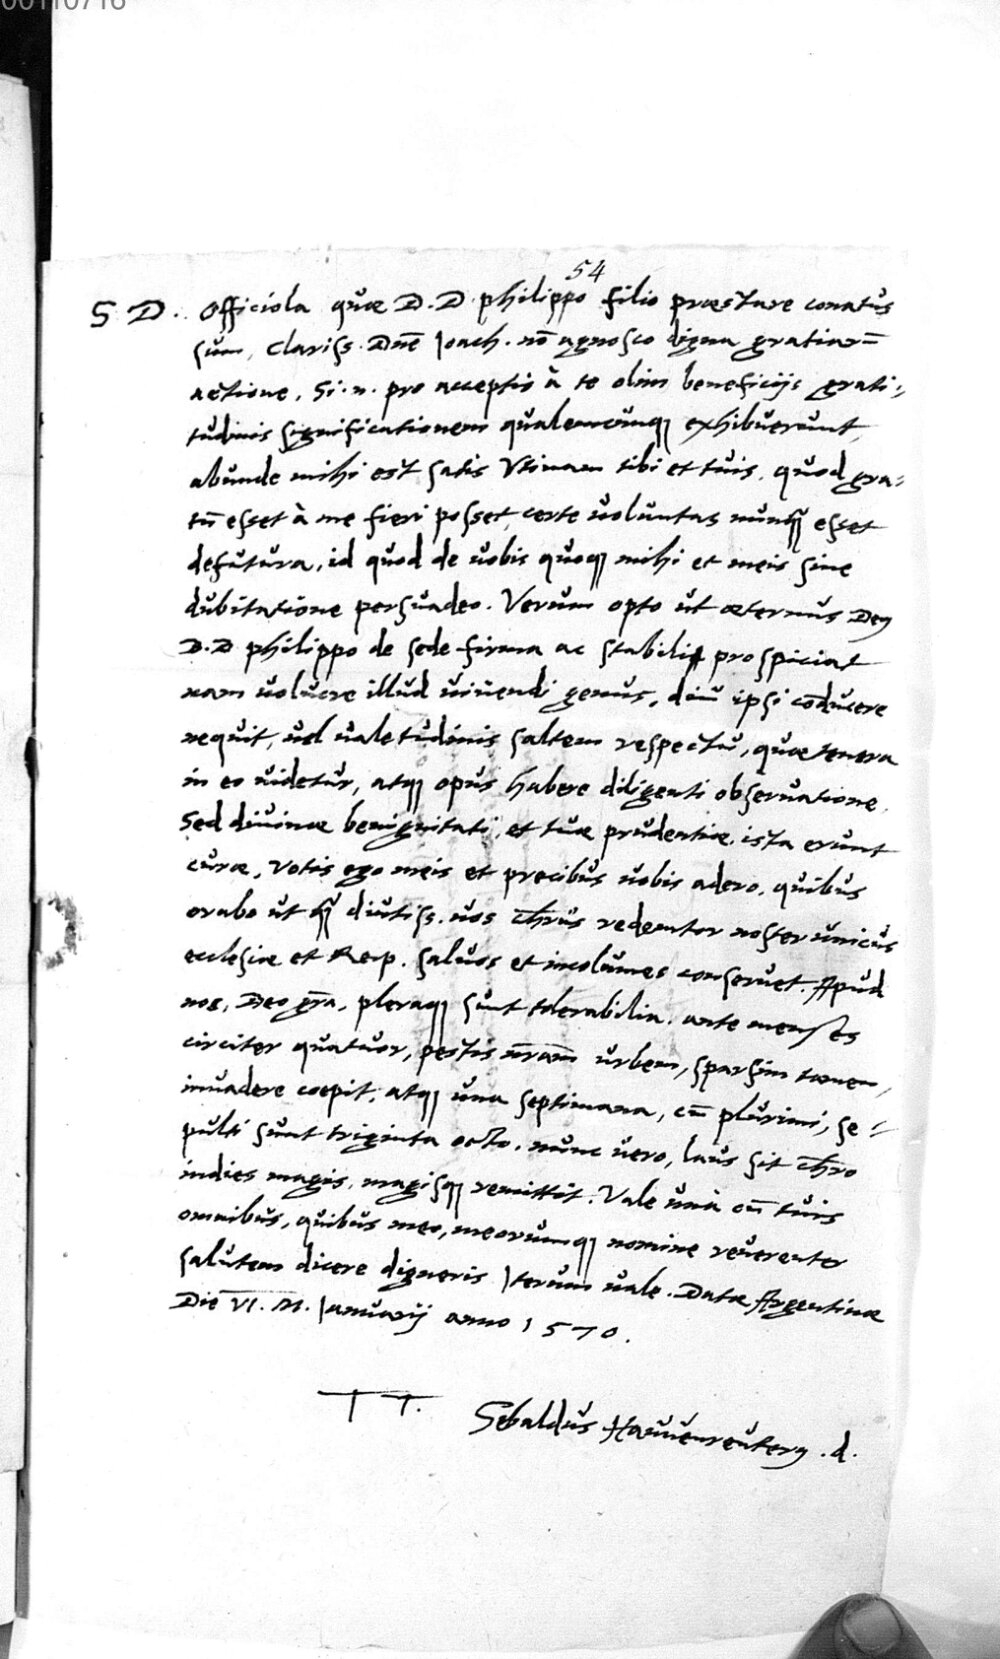 00110716
54
S. D. Officiola quæ D. D. philippo filio præstare conatus
sum, Clariss. Dnē Joach. nō agnosco digna gratiarū
actione, Si. n. pro acceptis à te olim beneficijs grati-
tudinis significationem qualemcumqȝ exhibuerunt,
abunde mihi est satis Vtinam tibi et tuis, quod gra-
tū esset à me fieri posset, certe voluntas nunqȝ esset
defutura, id quod de vobis quoqȝ mihi et meis sine
dubitatione persuadeo. Verum opto ut æternus Deus
D. D philippo de sede firma ac stabili prospiciat
nam volucre illud vivendi genus, diu ipsi cōducere
nequit, vel valetudinis saltem respectu, quæ tenera
in eo videtur, atqȝ opus habere diligenti observatione.
Sed divinæ benignitati, et tuæ prudentiæ ista erunt
curæ, Votis ego meis et precibus vobis adero, quibus
orabo ut qȝ diutiss. vos Chrūs redemtor noster unicus
ecclesiæ et Reip. salvos et incolumes conservet. Apud
nos, Deo grā, pleraqȝ sunt tolerabilia. ante menses
circiter quatuor, pestis nrām urbem, sparsim tamen,
invadere coepit, atqȝ una septimana, cū plurimi, se-
pulti sunt triginta octo. nunc vero, laus sit Chro
indies magis, magisqȝ remittit. Vale unà cū tuis
omnibus, quibus meo, meorumqȝ nomine reverenter
salutem dicere digneris Iterum vale. Datæ Argentinæ
Die VI. M. Januarij anno 1570.
T T.
Sebaldus Hauuenreuterus .d.